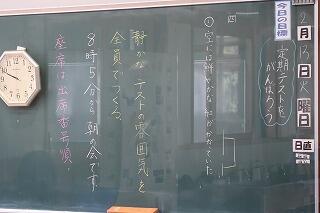 2月13日火曜日
日直
今日の目標
定期テストを
がんばろう
四
①空には鮮やかな虹がかかっていた。
静かなテストの雰囲気を
全員でつくる。
8時5分から朝の会です。
座席は出席番号順。